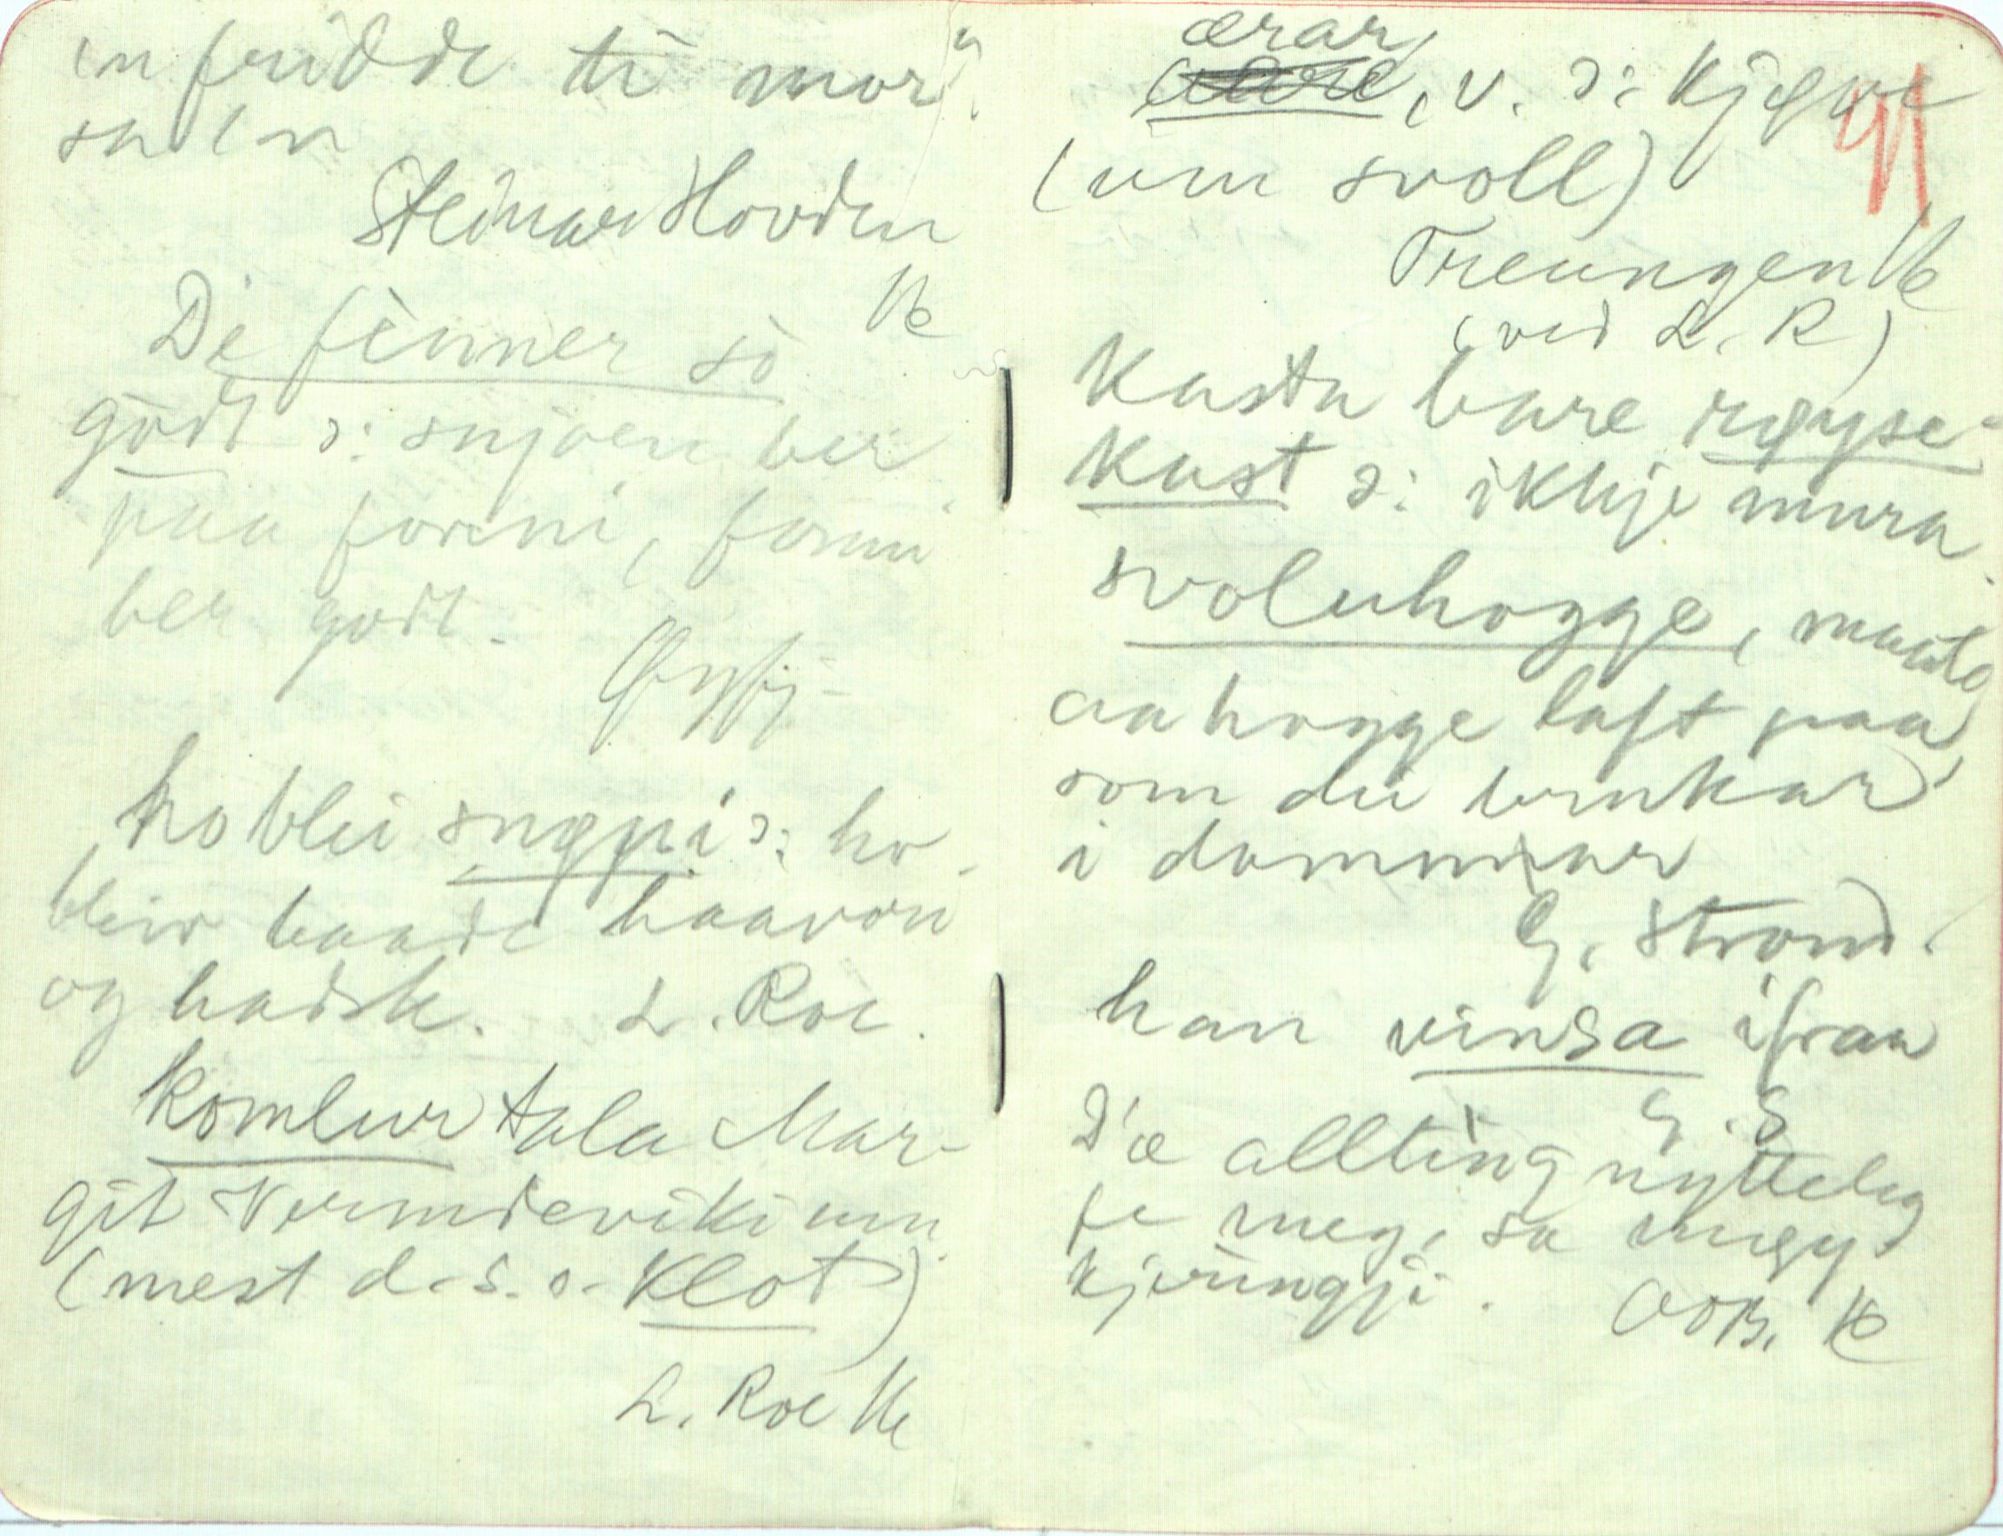 en fridde ti mor"
sa en
Steinar Hovden
De finner so
godt ɔ: snjoen ber
paa foreni, fonni
ber godt.
ho blei snøpi ɔ: ho
bleiv baade haavon
og hadsk. L. Roe.
Komlur tala Mar-
git Vermdeviki um
(mest d.s.o. Klot)
L. Roe
ærar, v. ɔ: Kjøve
(um svoll)
91
Treungen
(ved L. R)
Kasta bare røyse-
Kast ɔ: ikkje mura.
svoluhogge, maate
aa hogge laft paa,
som du brukar
i dammar
G. Strond.
han vinsa ifraa
G. S
D'æ allting nyttelig
fe meg, sa møy-
kjeringji. OOB.